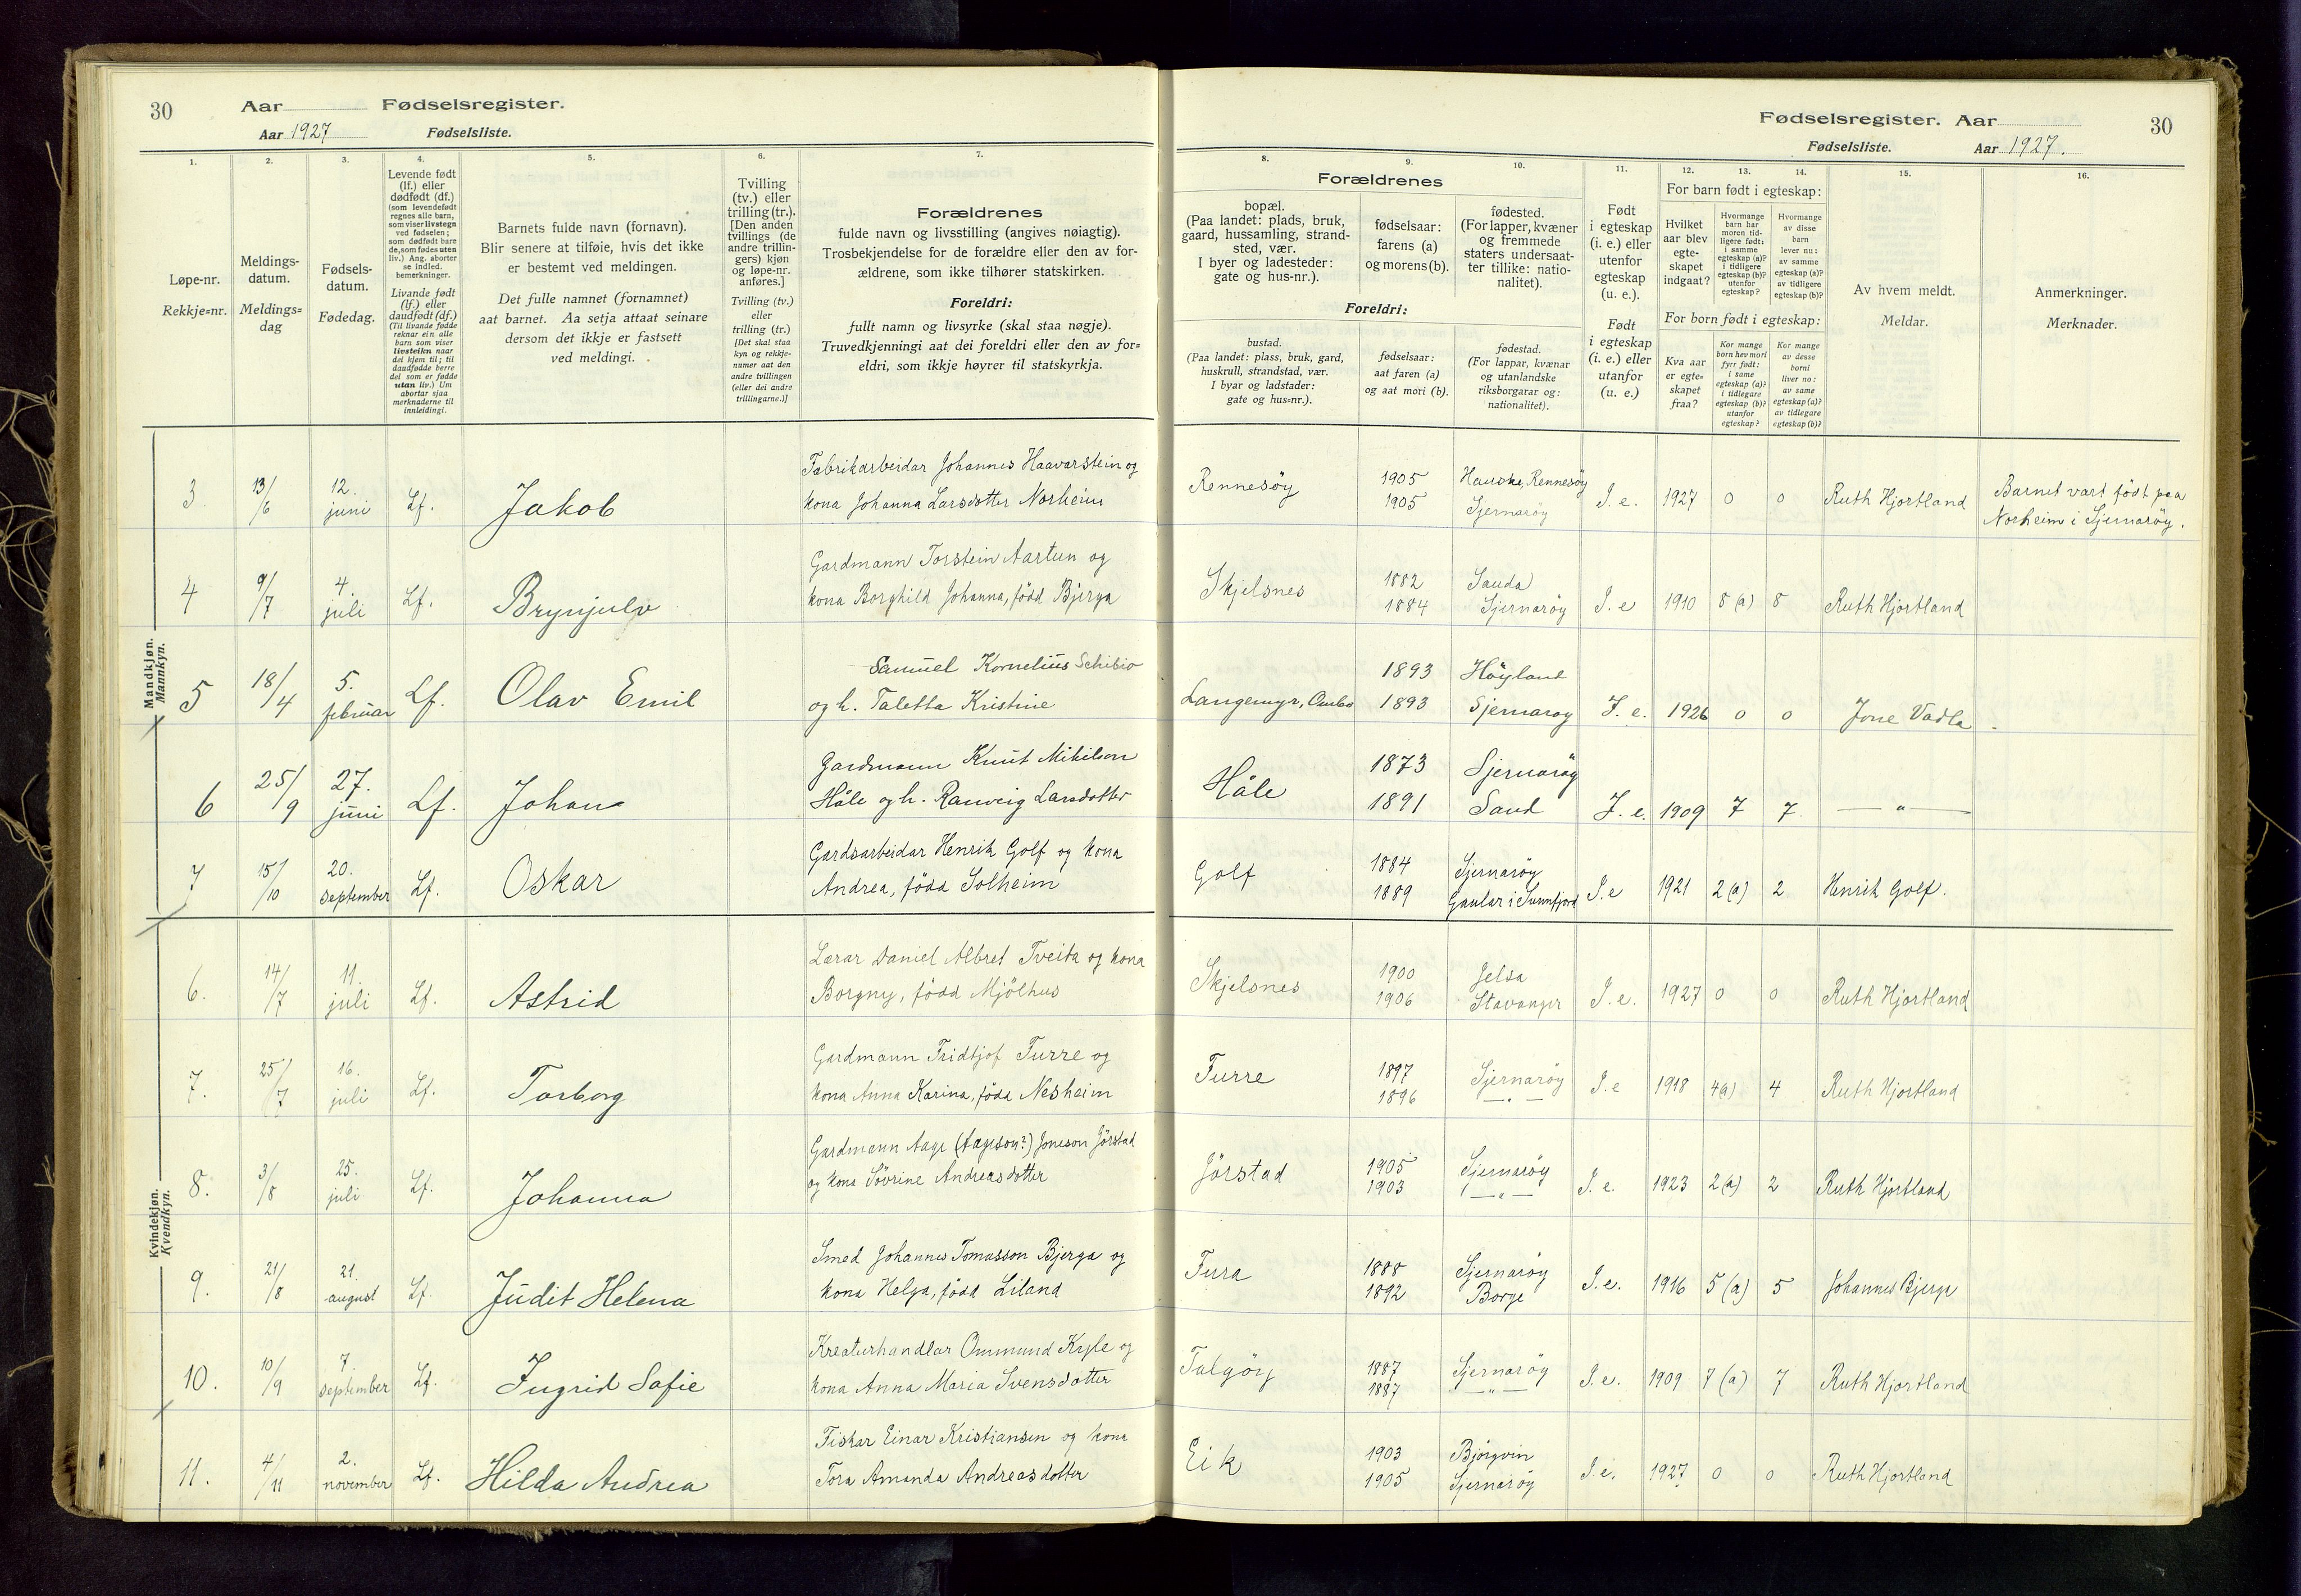 30 Aar Fødselsregister.
Aar 1927 Fødselsliste.
1.
Løpe-nr.
Rekkje=nr.
2.
Meldings-
datum.
Meldings=
dag
3.
Fødsels-
datum.
Fødedag.
4.
Levende født
(lf.) eller
dødfødt (df.)
(som levendefødt
regnes alle barn,
som viser livstegn
ved fødselen;
som dødfødt bare
de, som fødes uten
liv.) Ang. aborter
se indled.
bemerkninger.
Livande født
(lf.) eller
daudfødt (df.)
(Til livande fødde
reknar ein alle
barn som viser
livsteikn naar
dei kjem til; til
daudfødde berre
dei som er fødde
utan liv.) Um
abortar sjaa
merknaderne til
innleidingi.
5.
Barnets fulde navn (fornavn).
Blir senere at tilføie, hvis det ikke
er bestemt ved meldingen.
Det fulle namnet (fornamnet)
aat barnet. Aa setja attaat seinare
dersom det ikkje er fastsett
ved meldingi.
6.
Tvilling
(tv.) eller
trilling (tr.).
[Den anden
tvillings (de
andre trillin-
gers) kjøn
og løpe-nr.
anføres.]
Tvilling (tv.)
eller
trilling (tr.)
[Det skal staa
kyn og rekkje-
numer aat den
andre tvillingen
(eller dei andre
trillingarne.)]
7.
Forældrenes
fulde navn og livsstilling (angives nøiagtig).
Trosbekjendelse for de forældre eller den av for-
ældrene, som ikke tilhører statskirken.
Foreldri:
fullt namn og livsyrke (skal staa nøgje).
Truvedkjenningi aat dei foreldri eller den av for=
eldri, som ikkje høyrer til statskyrkja.
Fødselsregister. Aar 30
Fødselsliste. Aar 1927.
Forældrenes
8.
bopæl.
(Paa landet: plads, bruk,
gaard, hussamling, strand-
sted, vær.
I byer og ladesteder:
gate og hus-nr.).
9.
fødselsaar:
farens (a)
og morens (b).
10.
fødested.
(For lapper, kvæner
og fremmede
staters undersaat-
ter tillike: natio-
nalitet).
Foreldri:
bustad.
(Paa landet: plass, bruk, gard,
huskrull, strandstad, vær.
I byar og ladstader:
gate og hus=nr.).
fødselsaar:
aat faren (a)
og aat mori (b).
fødestad.
(For lappar, kvænar
og utanlandske
riksborgarar og:
nationalitet).
11.
Født
i egteskap
(i. e.) eller
utenfor
egteskap
(u. e.).
Født
i egteskap
(i. e.) eller
utanfor
(u. e.)
For barn født i egteskap:
12.
Hvilket
aar blev
egte-
skapet
indgaat?
13.
Hvormange
barn har
moren tid-
ligere født:
i samme
egteskap (a)?
i tidligere
egteskap (b)?
utenfor
egteskap?
14.
Hvormange
av disse
barn
lever nu:
av samme
egteskap (a)?
av tidligere
egteskap (b)?
For born født i egteskap:
Kva aar
er egte=
skapet
fraa?
Kor mange
born hev mori
fyrr født:
i same
egteskap (a)?
i tidlegare
egteskap (b)?
utanfor
egteskap?
Kor mange
av desse
borni
liver no:
av same
egteskap (a)?
av tidlegare
egteskap (b)?
15.
Av hvem meldt.
Meldar.
16.
Anmerkninger.
Merknader.
Mandkjøn.
Mannkyn.
3. 13/6 12. juni Lf. Jakob
Fabrikarbeidar Johannes Haavarstein og
kona Johanna Larsdotter Norheim
Rennesöy 1905 Hauske, Rennesöy
1905 Sjernaröy
I. e. 1927 0 0 Ruth Hjortland
Barnet vart født paa
Norheim i Sjernaröy.
4 9/7 4. juli Lf. Brynjulv
Gardmann Torstein Aartun og
kona Borghild Johanna, född Bjerga
Skjelsnes 1882 Sauda
1884 Sjernaröy
I. e 1910 8 (a) 8 Ruth Hjortland
5 18/4 5. februar Lf. Olav Emil
Samuel Kornelius Schibio
og h. Taletta Kristine
Langemyr, Ombo 1893 Höyland
1893 Sjernaroy
I. e. 1926 0 0 Jone Vadla
6 25/9 27. juni Lf. Johan
Gardmann Knut Mikilson
Håle og h. Ranveig Larsdotter
Håle 1873 Sjernaröy
1891 Sand
I. e. 1909 7 7 — " —
7 15/10 20. september Lf. Oskar
Gardsarbeidar Henrik Golf og kona
Andrea, född Solheim
Golf 1884 Sjernaröy
1889 Gaular i Sunnfjord
I. e 1921 2 (a) 2 Henrik Golf.
Kvindekjøn.
Kvendkyn.
6. 14/7 11. juli Lf. Astrid
Lærar Daniel Albret Tveita og kona
Borgny, född Mjölhus
Skjelsnes 1900 Jelsa
1906 Stavanger
I. e. 1927 0 0 Ruth Hjortland
7. 25/7 16. juli Lf. Torborg
Gardmann Fridtjof Furre og
kona Anna Karina, född Nesheim
Furre 1897 Sjernaröy
1896 — " —
I. e 1918 4(a) 4 Ruth Hjortland
8. 3/8 25. juli Lf. Johanna
Gardmann Aage (Aageson?) Joneson Jörstad
og kona Sövrine Andreasdotter
Jörstad 1905 Sjernaröy
1903 — " —
I. e. 1923 2(a) 2 Ruth Hjortland
9. 21/8 21. august Lf. Judit Helena
Smed Johannes Tomasson Bjerga og
kona Helga, född Liland
Fura 1888 Sjernaröy
1892 Borge
I. e. 1916 5 (a) 5 Johannes Bjerga
10. 10/9 7. september Lf. Ingrid Sofie
Kreaturhandlar Ommund Kyle og
kona Anna Maria Svensdotter
Talgöy 1887 Sjernaröy
1887 — " —
I. e. 1909 7 (a) 7 Ruth Hjortland
11. 4/11 2. november Lf. Hilda Andrea
Fiskar Einar Kristiansen og kona
Tora Amanda Andreasdotter
Eik 1903 Björgvin
1905 Sjernaröy
I. e. 1927 0 0 Ruth Hjortland